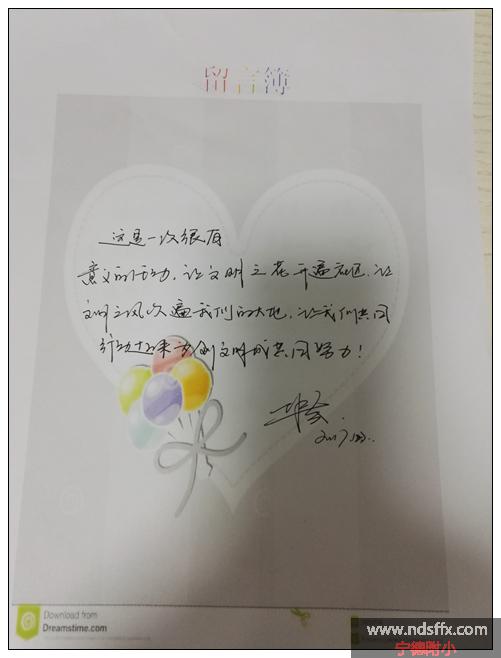 留言簿
这是一次很有
意义的活动，让文明之花开遍社区，让
文明之风吹遍我们的大地，让我们共同
行动起来为创文明城共同努力！
2017.
Download from
Dreamstime.com
www.ndsffx.com
宁德附小